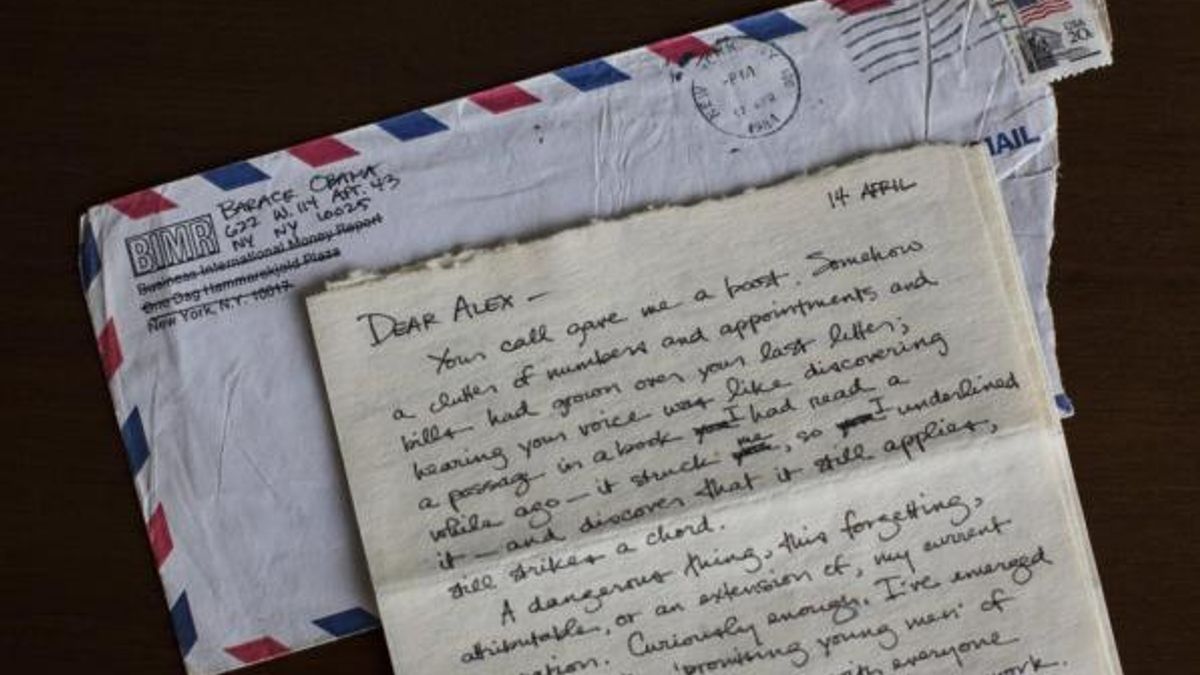 BARACK OBAMA
622 W. 114 APT. 43
NY NY 10025
BIMR
Business International Money Report
One Dag Hammarskjold Plaza
New York, N.Y.
PM
17 APR
USA
20c
MAIL
14 APRIL
DEAR ALEX —
Your call gave me a boost. Somehow
a clutter of numbers and appointments and
bills had grown over your last letter;
hearing your voice was like discovering
a passage in a book you I had read a
while ago — it struck you me, so you I underlined
it — and discover that it still applies,
still strikes a chord.
A dangerous thing, this forgetting,
attributable, or an extension of, my current
Curiously enough, I've emerged
'promising young men' of
with everyone
work.